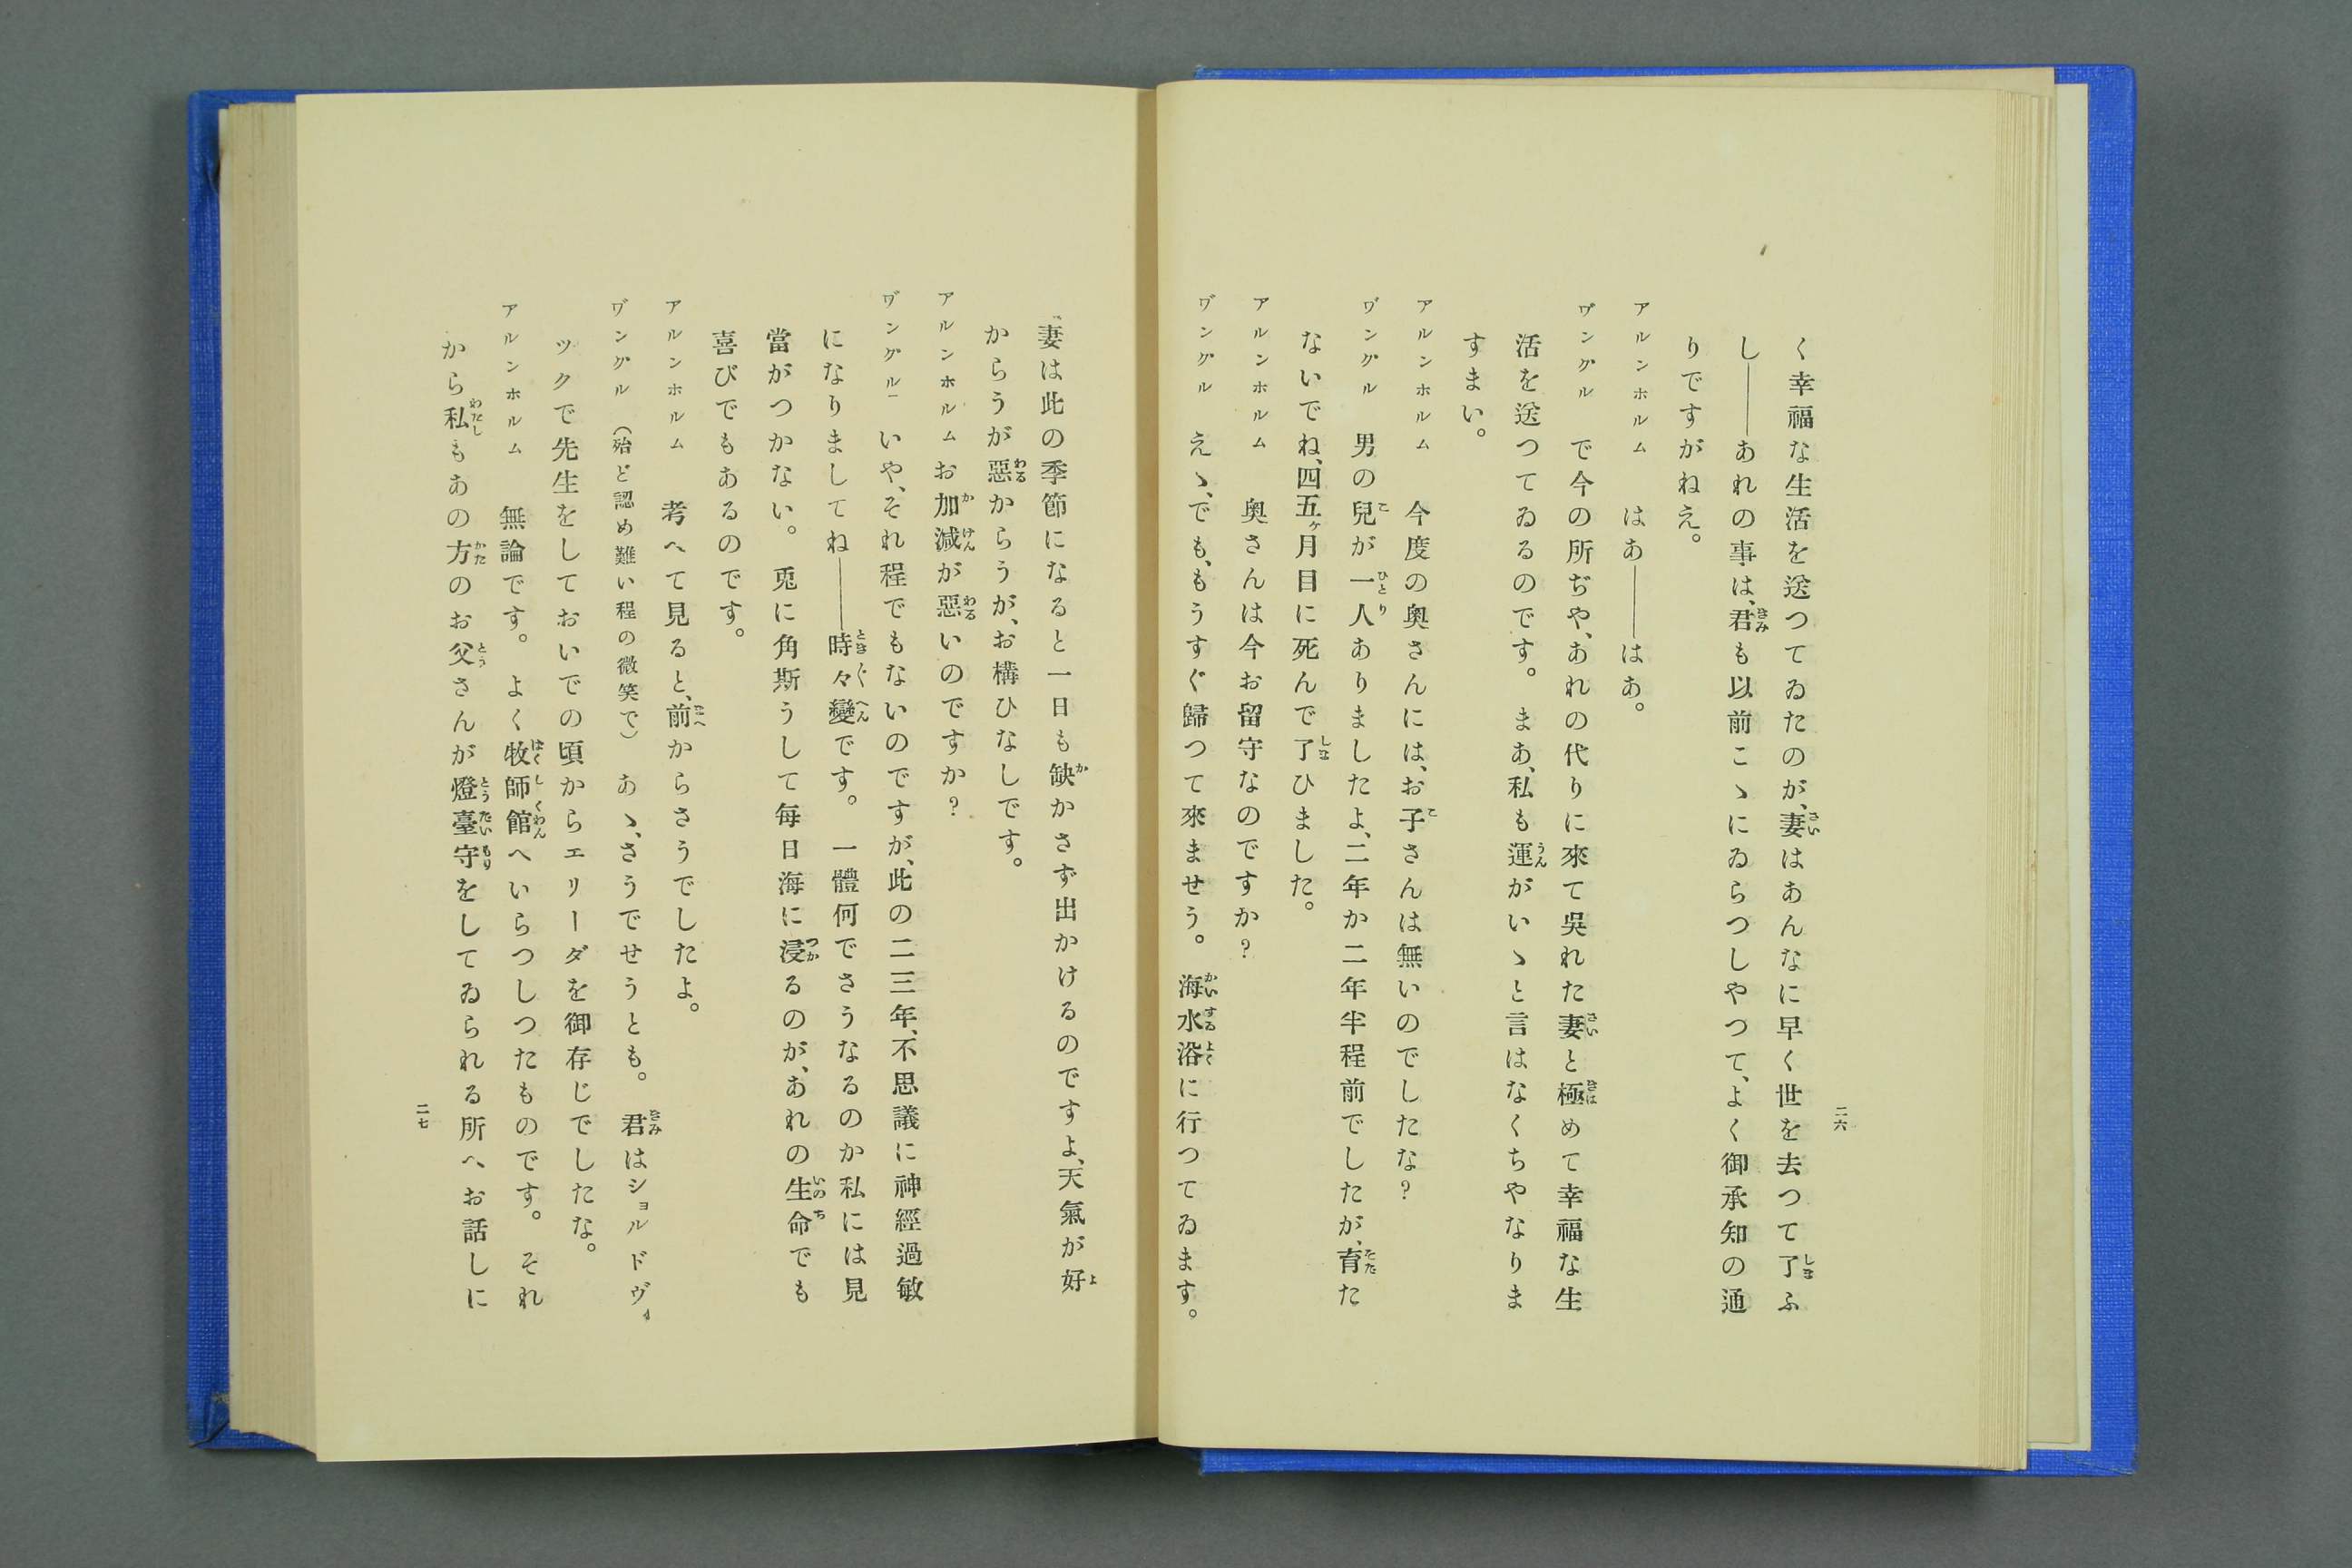 二六
く幸福な生活を送つてゐたのが、妻はあんなに早く世を去つて了ふ
し――あれの事は、君も以前こゝにゐらつしやつて、よく御承知の通
りですがねえ。
アルンホルム　はあ――はあ。
ヷングル　で今の所ぢや、あれの代りに來て吳れた妻と極めて幸福な生
活を送つてゐるのです。まあ、私も運がいゝと言はなくちやなりま
すまい。
アルンホルム　今度の奥さんには、お子さんは無いのでしたな？
ヷングル　男の兒が一人ありましたよ、二年か二年半程前でしたが、育た
ないでね、四五ヶ月目に死んで了ひました。
アルンホルム　奥さんは今お留守なのですか？
ヷングル　えゝ、でも、もうすぐ歸つて來ませう。海水浴に行つてゐます。
妻は此の季節になると一日も缺かさず出かけるのですよ、天氣が好
からうが惡からうが、お構ひなしです。
アルンホルム　お加減が惡いのですか？
ヷングル　いや、それ程でもないのですが、此の二三年、不思議に神經過敏
になりましてね――時々變です。一體何でさうなるのか私には見
當がつかない。兎に角斯うして毎日海に浸るのが、あれの生命でも
喜びでもあるのです。
アルンホルム　考へて見ると、前からさうでしたよ。
ヷングル　（殆ど認め難い程の微笑で）　あゝ、さうでせうとも。君はショルドヴィ
ックで先生をしておいでの頃からエリーダを御存じでしたな。
アルンホルム　無論です。よく牧師館へいらつしつたものです。それ
から私もあの方のお父さんが燈臺守をしてゐられる所へお話しに
二七